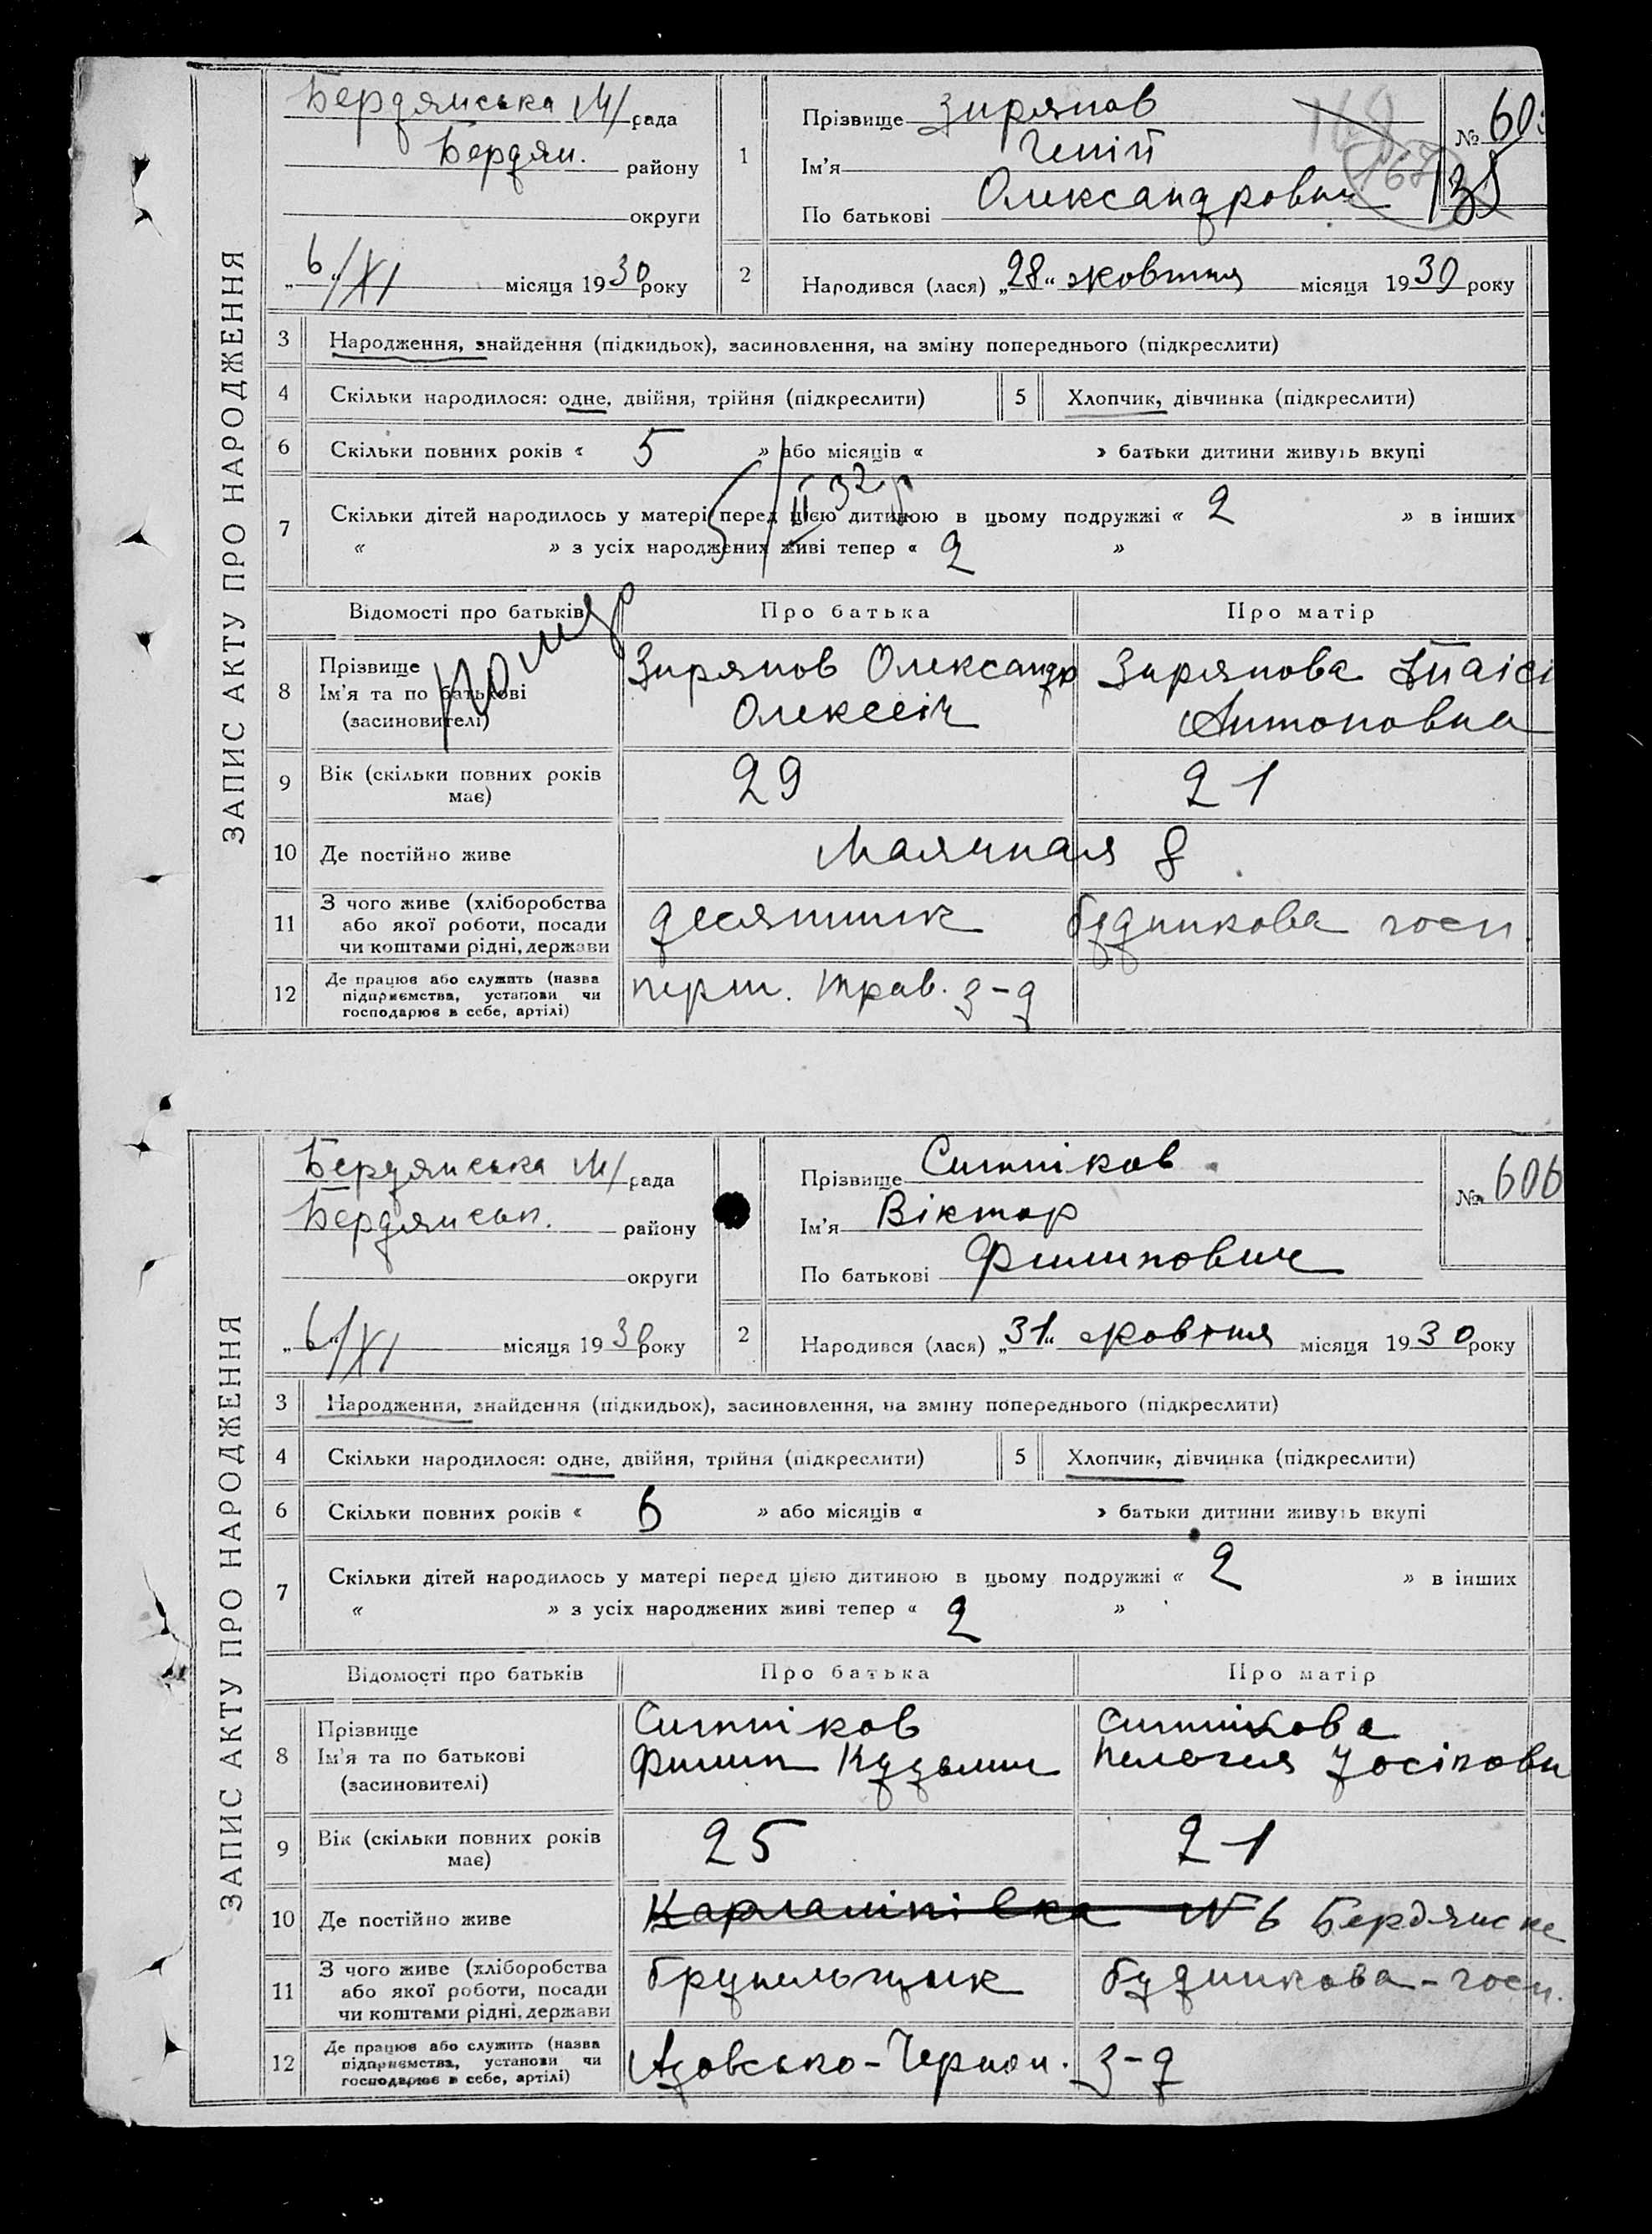 ЗАПИС АКТУ ПРО НАРОДЖЕННЯ
Бердянська м/рада
Бердян. району
округи
„6/XI місяця 1930 року
1
Прізвище Зирянов
Ім'я Геній
По батькові Олександрович
№ 605
2
Народився (лася) „28“ жовтня місяця 1930 року
3 Народження, знайдення (підкидьок), засиновлення, на зміну попереднього (підкреслити)
4 Скільки народилося: одне, двійня, трійня (підкреслити) 5 Хлопчик, дівчинка (підкреслити)
6 Скільки повних років « 5 » або місяців « » батьки дитини живуть вкупі
7 Скільки дітей народилось у матері перед цією дитиною в цьому подружжі « 2 » в інших
« » з усіх народжених живі тепер « 2 »
Помер 5/II 32 р
Відомості про батьків Про батька Про матір
8 Прізвище
Ім'я та по батькові
(засиновителі)
Зирянов Олександр
Олексеіч
Зирянова
Антоновна
9 Вік (скільки повних років
має)
29 21
10 Де постійно живе Маячная 8
11 З чого живе (хліборобства
або якої роботи, посади
чи коштами рідні, держави
десятник будинкова госп.
12 Де працює або служить (назва
підприємства, установи чи
господарює в себе, артілі)
перш. Трав. з-д
ЗАПИС АКТУ ПРО НАРОДЖЕННЯ
Бердянська м/рада
Бердянськ. району
округи
„6/XI місяця 1930 року
Прізвище Ситніков
Ім'я Віктор
По батькові Филипович
№ 606
2
Народився (лася) „31“ жовтня місяця 1930 року
3 Народження, знайдення (підкидьок), засиновлення, на зміну попереднього (підкреслити)
4 Скільки народилося: одне, двійня, трійня (підкреслити) 5 Хлопчик, дівчинка (підкреслити)
6 Скільки повних років « 6 » або місяців « » батьки дитини живуть вкупі
7 Скільки дітей народилось у матері перед цією дитиною в цьому подружжі « 2 » в інших
« » з усіх народжених живі тепер « 2 »
Відомості про батьків Про батька Про матір
8 Прізвище
Ім'я та по батькові
(засиновителі)
Ситніков
Филип Кузьмич
Ситнікова
Пелагея Йосіповн
9 Вік (скільки повних років
має)
25 21
10 Де постійно живе № 6 Бердянске
11 З чого живе (хліборобства
або якої роботи, посади
чи коштами рідні, держави
будинкова-госп.
12 Де працює або служить (назва
підприємства, установи чи
господарює в себе, артілі)
Азовсько-Чорном. з-д